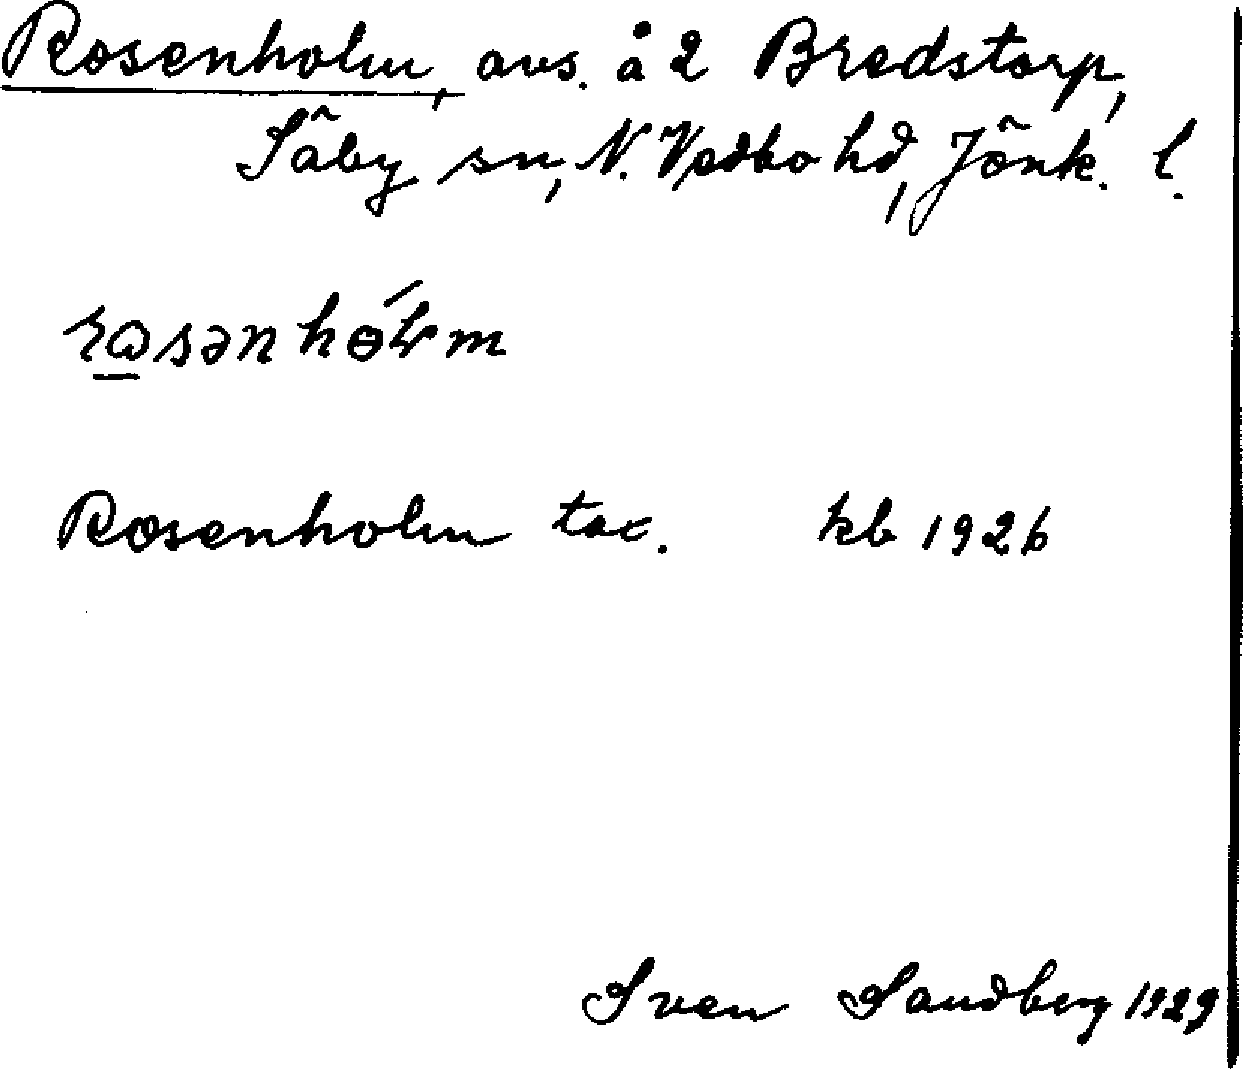 Rosenholm, avs. å 2 Bredstorp,
Säby sn, N. Vedbo hd, Jönk. l.
rꞷsənhɵ́lm
Rosenholm tax. kb 1926
Sven Sandberg 1929